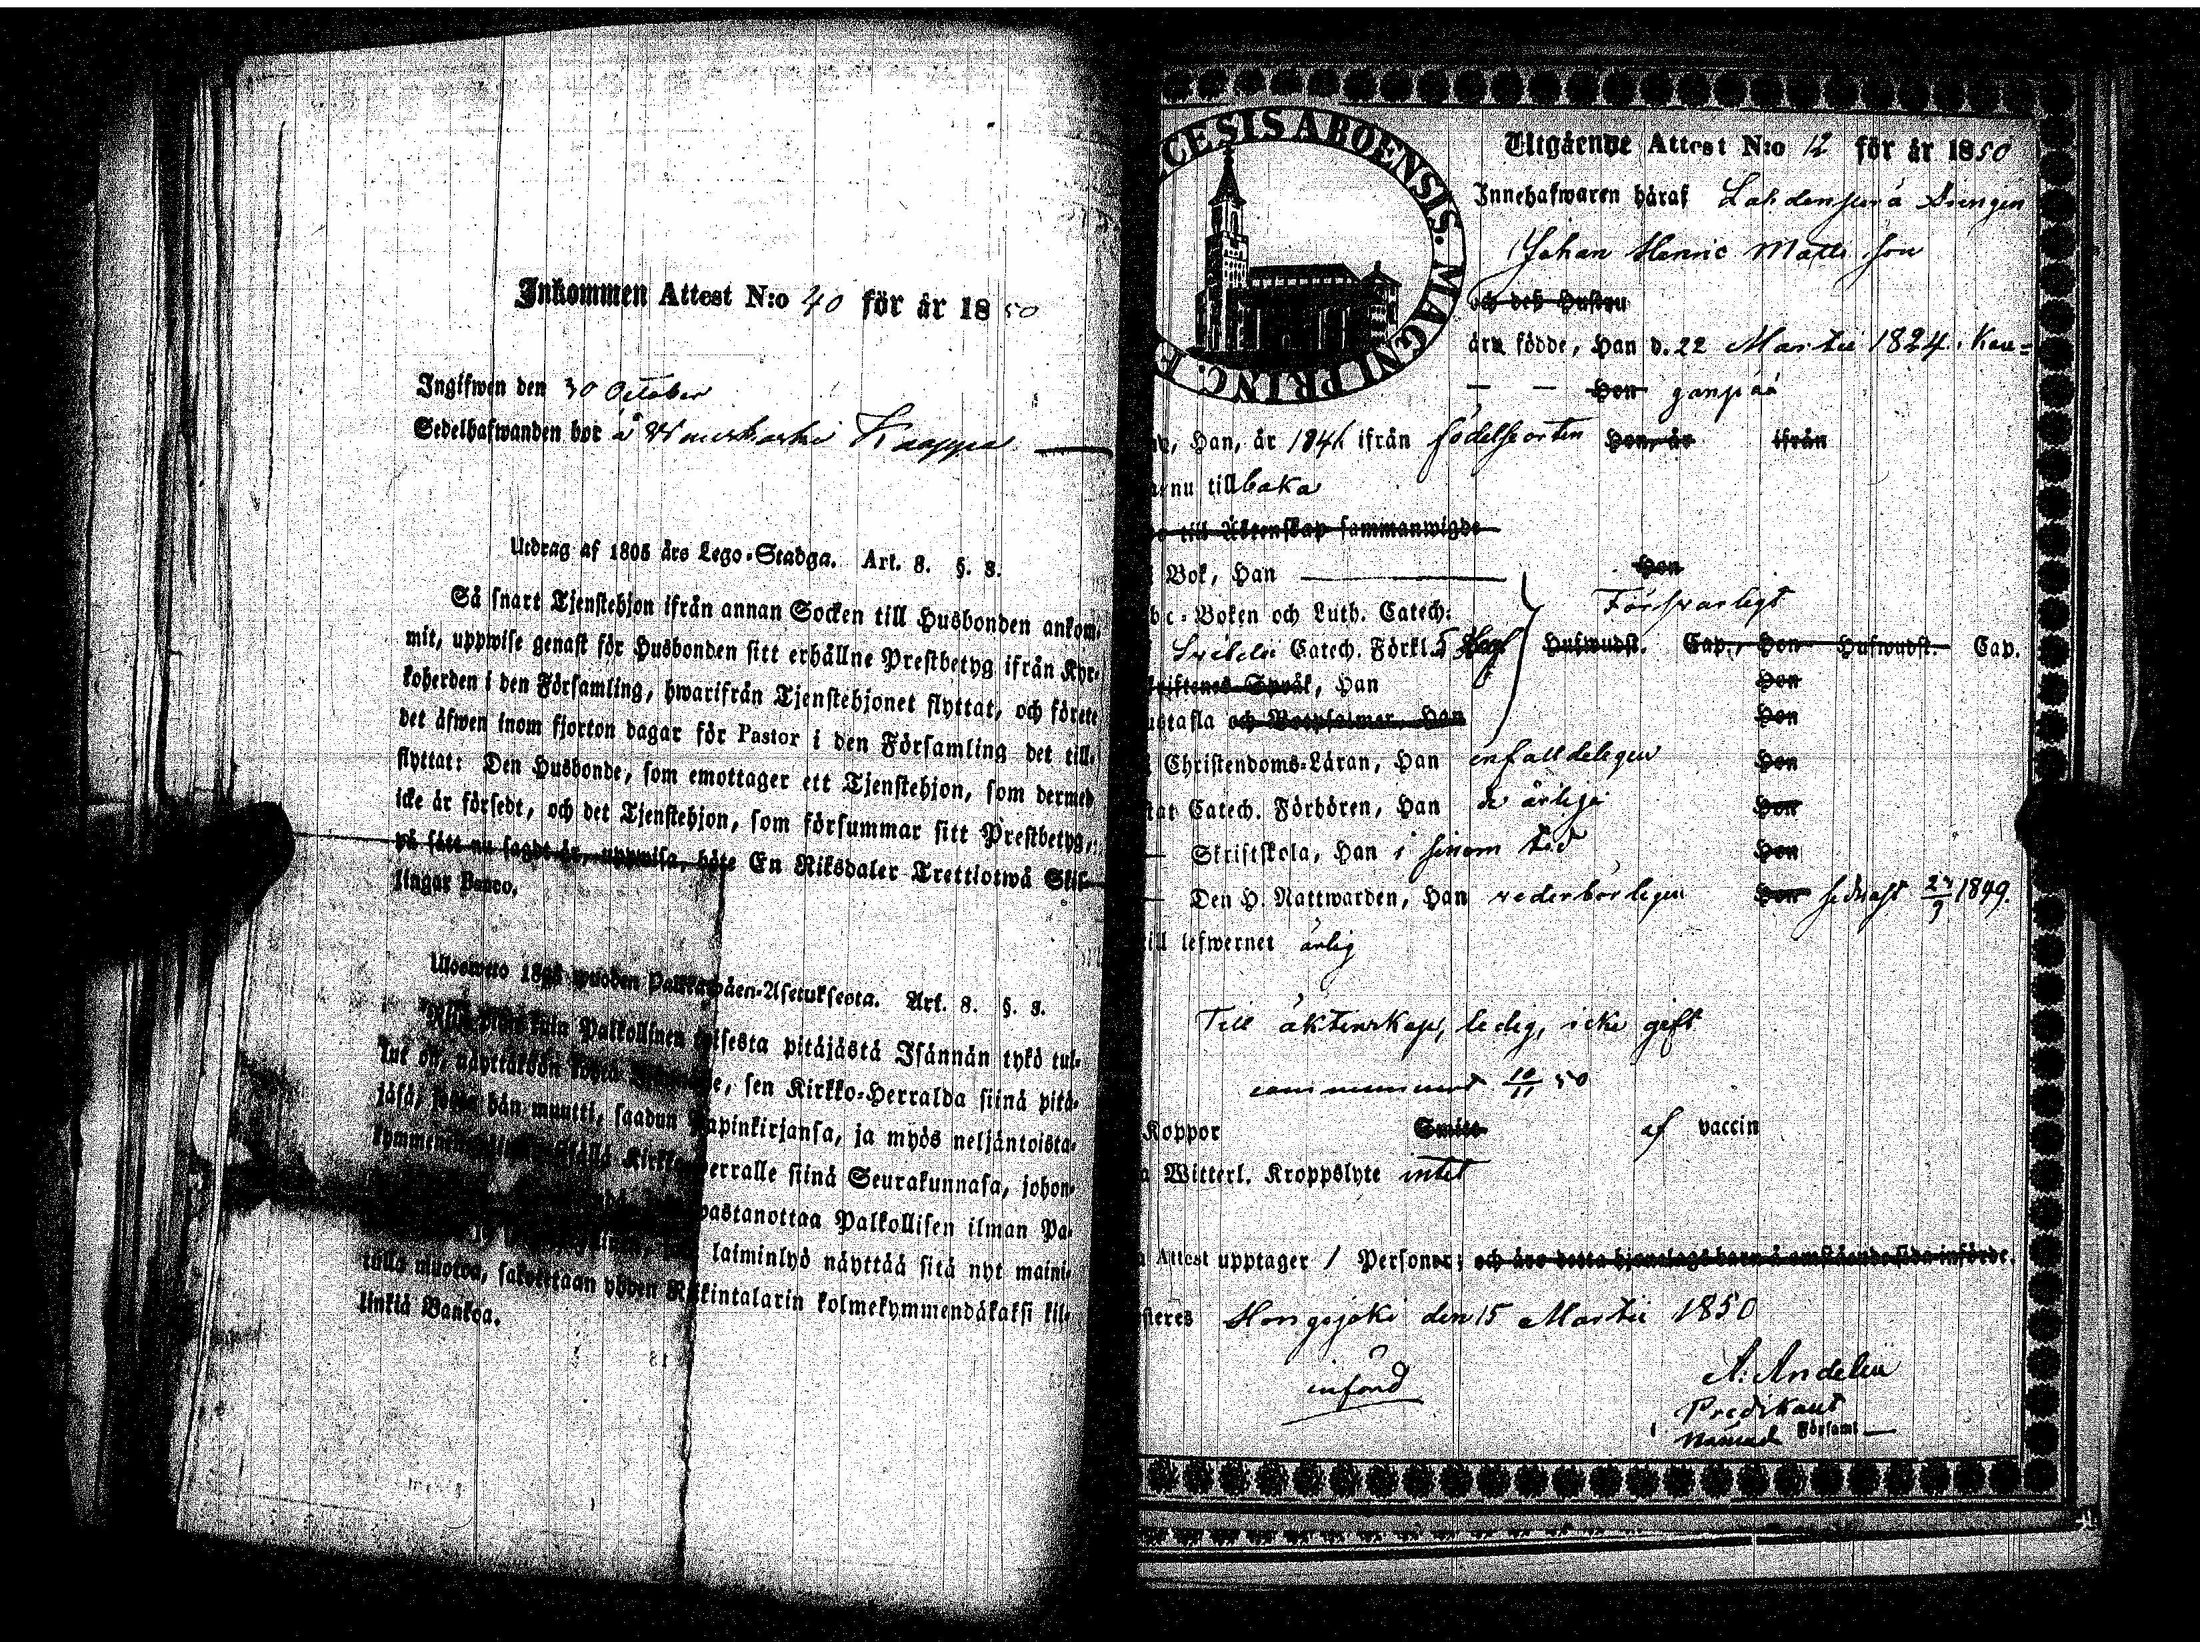 Inkommen Attest N:o 40 för år 1850
Ingifwen den 30 October
Sedelhafwanden bor å
Utdrag af 1805 års Lego-Stadga. Art. 8. §. 3.
Så snart Tjenstehjon ifrån annan Socken till Husbonden ankom-
mit, uppwise genast för Husbonden sitt erhållne Prestbetyg ifrån Kyr-
koherden i den Församling, hwarifrån Tjenstehjonet flyttat, och förete
det äfwen inom fjorton dagar för Pastor i den Församling det till-
flyttat: Den Husbonde, som emottager ett Tjenstehjon, som dermed
icke är försedt, och det Tjenstehjon, som försummar sitt Prestbetyg,
på sätt nu sagdt är, uppwisa, böte En Riksdaler Trettiotwå Skil-
lingar Banco.
Ulosweto 1805 wuoden Palkkawäen-Asetuksesta. Art. 8. §. 3.
kuin Palkollinen toisesta pitäjästä Isännän tykö tul-
lut on, näyttäköön sen Kirkko-Herralda siinä pitä-
jäsä, josta hän muutti, saadun Papinkirjansa, ja myös neljäntoista-
kymmenen Kirkkoherralle siinä Seurakunnasa, johon-
wastanottaa Palkollisen ilman Pa-
laiminlyö näyttää sitä nyt maini-
tulla muotoa, sakotetaan yhden Riikintalarin kolmekymmendäkaksi kil-
linkiä Bankoa.
CESIS ABOENSIS. MAGNI PRINC. F
Utgående Attest N:o 12 för år 1850
Innehafwaren häraf Lahdenperä Drengen
Johan Henric Matts son
och deß Hustru
äro födde, Han d. 22 Martii 1824. i Kan=
— — Hon ganpää
Han, år 1841 ifrån födelseorten Hon, år ifrån
nu tillbaka
till Äktenskap sammanwigde
Bok, Han Hon
bc-Boken och Luth. Catech: Förswarligt
Svebelii Catech. Förkl. 5 Hufwudst. Cap., Hon Hufwudst. Cap.
Skriftenes Språk, Han Hon
Hustafla och Botpsalmer, Han Hon
Christendoms-Läran, Han enfalldeligen Hon
Catech. Förhören, Han de årliga Hon
— Skriftskola, Han i sinom tid Hon
— Den H. Nattwarden, Han wederbörligen Hon sednast 23/9 1849.
till lefwernet ärlig
Till äktenskap, ledig, icke gift
10/11 50
Koppor Smitto af vaccin
Witterl. Kroppslyte intet
Attest upptager 1 Personer; och äro detta hjonelags barn å omstående sida införde.
Hongojoki den 15 Martii 1850
införd
A. Andelin
Predikant
i nämnd Församl —